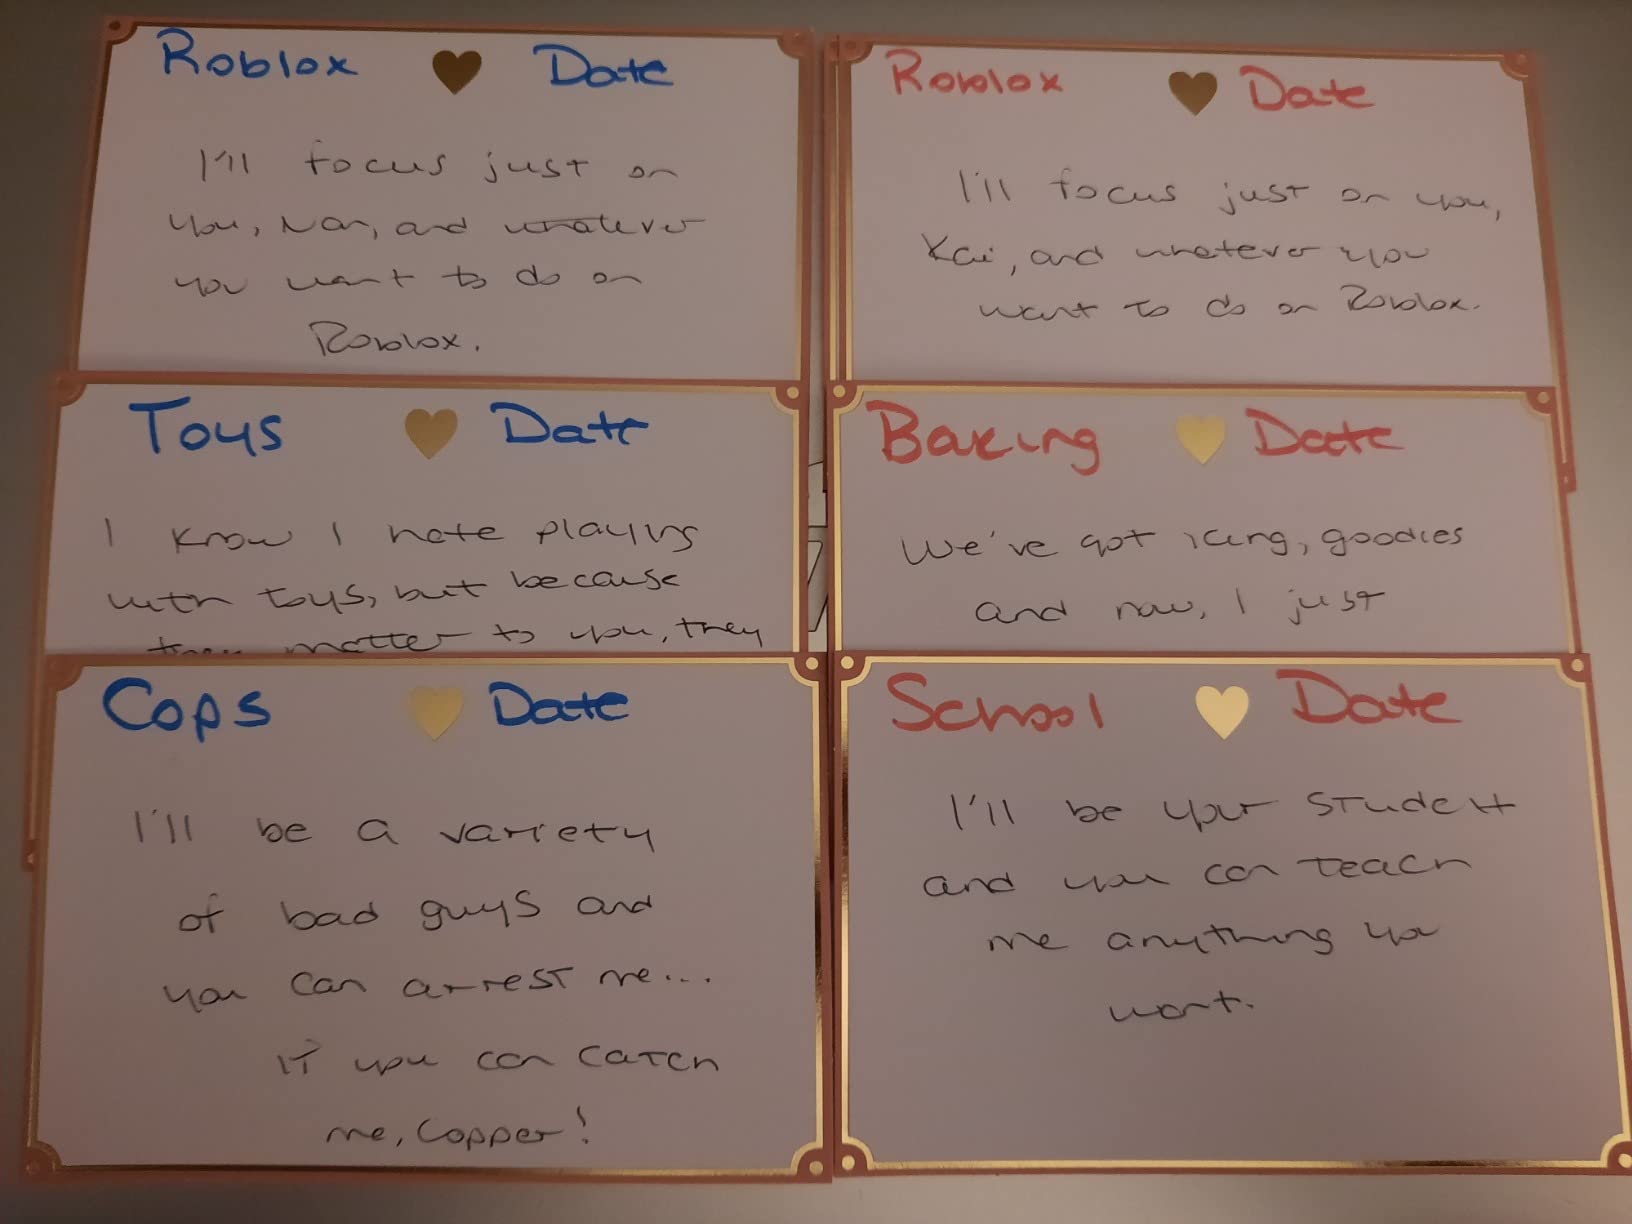 Roblox Date
I'll focus just on
you, Nan, and whatever
you want to do on
Roblox.
Roblox Date
I'll focus just on you,
Kai, and whatever you
want to do on Roblox.
Toys Date
I know I hate playing
with toys, but because
they matter to you, they
Baking Date
We've got icing, goodies
and now, I just
Cops Date
I'll be a variety
of bad guys and
you can arrest me...
if you can catch
me, Copper!
School Date
I'll be your student
and you can teach
me anything you
want.